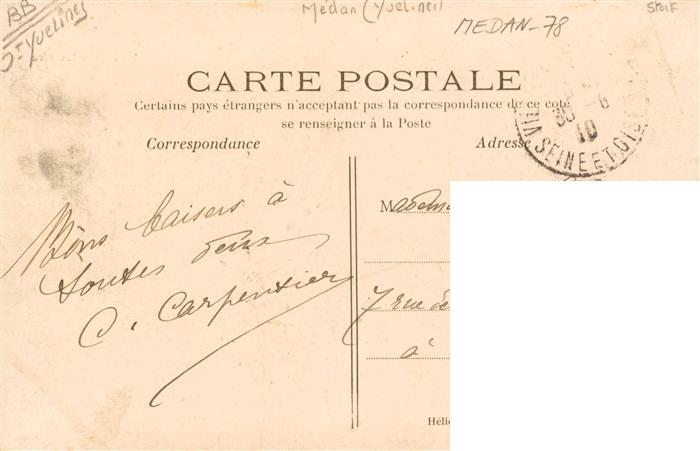 BB
Yvelines
Médan (Yvelines)
MEDAN-78
Stock
CARTE POSTALE
Certains pays étrangers n'acceptant pas la correspondance de ce coté
se renseigner à la Poste
Correspondance
Adresse
30 - 8
10
SEINE ET OISE
baisers à
toutes deux
C. Carpentier
7 rue de
à
Hélio